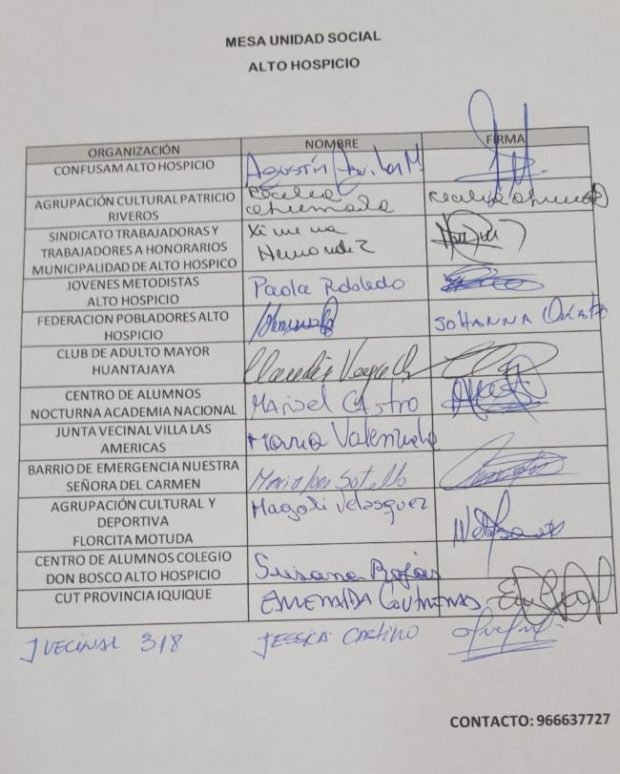 MESA UNIDAD SOCIAL
ALTO HOSPICIO
ORGANIZACIÓN NOMBRE FIRMA
CONFUSAM ALTO HOSPICIO Agustín Avilas M.
AGRUPACIÓN CULTURAL PATRICIO Cecilia
RIVEROS Ahumada Cecilia Ahumada
SINDICATO TRABAJADORAS Y Ximena
TRABAJADORES A HONORARIOS Hernandez
MUNICIPALIDAD DE ALTO HOSPICO
JOVENES METODISTAS Paola Robledo
ALTO HOSPICIO
FEDERACION POBLADORES ALTO JOHANNA
HOSPICIO
CLUB DE ADULTO MAYOR Claudia
HUANTAJAYA
CENTRO DE ALUMNOS Marisel Castro
NOCTURNA ACADEMIA NACIONAL
JUNTA VECINAL VILLA LAS Maria Valenzuela
AMERICAS
BARRIO DE EMERGENCIA NUESTRA Maria Ines Sotello
SEÑORA DEL CARMEN
AGRUPACIÓN CULTURAL Y Magali Velasquez
DEPORTIVA
FLORCITA MOTUDA
CENTRO DE ALUMNOS COLEGIO Susana Rojas
DON BOSCO ALTO HOSPICIO
CUT PROVINCIA IQUIQUE Esmeralda Contreras
J VECINAL 318 JESSICA CASTILLO
CONTACTO: 966637727